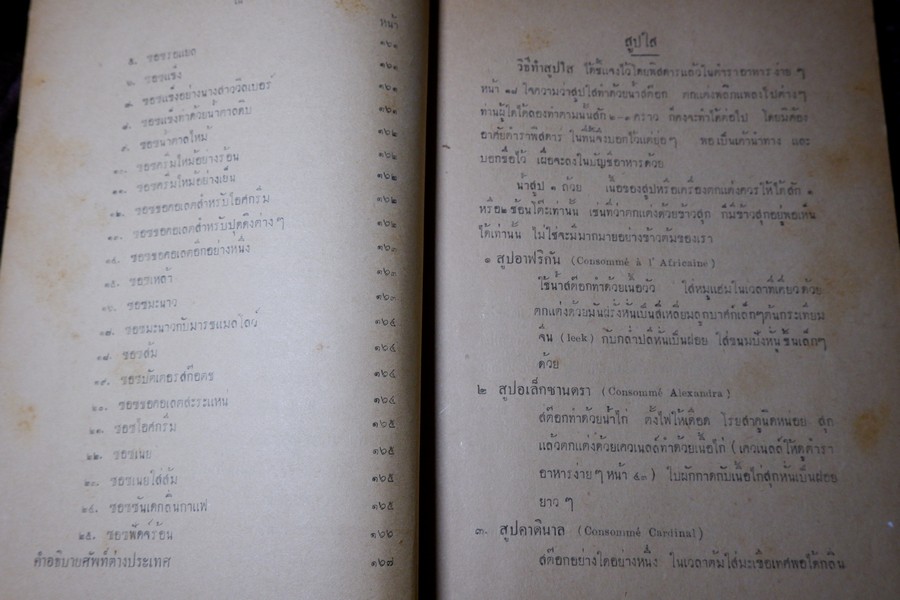 หน้า
๕. ซอซรอแยล ๑๖๑
๖. ซอซแข็ง ๑๖๑
๗. ซอซแข็งอย่างนางสาววิลเบอร์ ๑๖๑
๘. ซอซแข็งทำด้วยน้ำตาลดิบ ๑๖๑
๙. ซอซน้ำตาลไหม้ ๑๖๒
๑๐. ซอซครีมไหม้อย่างร้อน ๑๖๒
๑๑. ซอซครีมไหม้อย่างเย็น ๑๖๒
๑๒. ซอซชอคอเลตสำหรับไอศกรีม ๑๖๒
๑๓. ซอซชอคอเลตสำหรับปุดดิงต่างๆ ๑๖๒
๑๔. ซอซชอคอเลตอีกอย่างหนึ่ง ๑๖๓
๑๕. ซอซเหล้า ๑๖๓
๑๖. ซอซมะนาว ๑๖๓
๑๗. ซอซมะนาวกับมารชแมลโลว์ ๑๖๔
๑๘. ซอซส้ม ๑๖๔
๑๙. ซอซบัตเตอรสก๊อตช ๑๖๔
๒๐. ซอซชอคอเลตสะระแหน่ ๑๖๔
๒๑. ซอซไอศกรีม ๑๖๕
๒๒. ซอซเนย ๑๖๕
๒๓. ซอซเนยใส่ส้ม ๑๖๕
๒๔. ซอซซันเดกลิ่นกาแฟ ๑๖๕
๒๕. ซอซฟัดจ์ร้อน ๑๖๖
คำอธิบายศัพท์ต่างประเทศ ๑๖๗
สูปใส
วิธีทำสูปใส ได้ชี้แจงไว้โดยพิสดารแล้วในตำราอาหารง่าย ๆ
หน้า ๑๗ ใจความว่าสูปใสทำด้วยน้ำสต๊อก ตกแต่งพลิกแพลงไปต่างๆ
ท่านผู้ใดได้ลองทำตามนั้นสัก ๒-๓ คราว ก็คงจะทำได้ต่อไป โดยมิต้อง
อาศัยตำราพิสดาร ในที่นี้จึงบอกไว้แต่ย่อๆ พอเป็นเค้านำทาง และ
บอกชื่อไว้ เผื่อจะลงในบัญชีอาหารด้วย
น้ำสูป ๑ ถ้วย เนื้อของสูปหรือเครื่องตกแต่งควรให้ได้สัก ๑
หรือ๒ ช้อนโต๊ะเท่านั้น เช่นที่ว่าตกแต่งด้วยข้าวสุก ก็มีข้าวสุกอยู่พอเห็น
ได้เท่านั้น ไม่ใช่จะมีมากมายอย่างข้าวต้มของเรา
๑ สูปอาฟริกัน (Consommé à l' Africaine)
ใช้น้ำสต๊อกทำด้วยเนื้อวัว ใส่หมูแฮมในเวลาที่เคี่ยวด้วย
ตกแต่งด้วยมันฝรั่งหั่นเป็นสี่เหลี่ยมลูกบาศก์เล็กๆต้นกระเทียม
จีน (leek) กับกล่ำปลีหั่นเป็นฝอย ใส่ขนมปังหั่นชิ้นเล็กๆ
ด้วย
๒ สูปอเล็กซานดรา (Consommé Alexandra)
สต๊อกทำด้วยน้ำไก่ ตั้งไฟให้เดือด โรยสาคูนิดหน่อย สุก
แล้วตกแต่งด้วยเควเนลล์ทำด้วยเนื้อไก่ (เควเนลล์ให้ดูตำรา
อาหารง่ายๆ หน้า ๔๓) ใบผักกาดกับเนื้อไก่สุกหั่นเป็นฝอย
ยาว ๆ
๓. สูปคาดินาล (Consommé Cardinal)
สต๊อกอย่างใดอย่างหนึ่ง ในเวลาต้มใส่มะเขือเทศพอได้กลิ่น